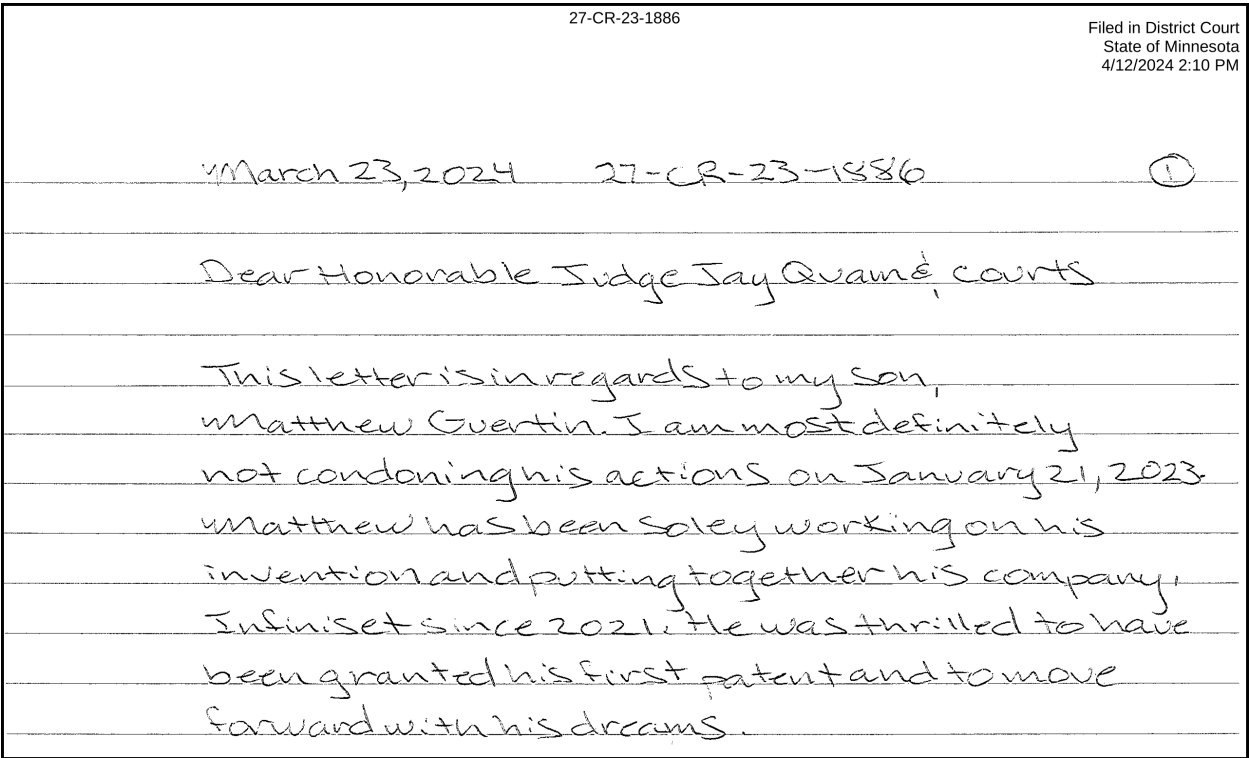 27-CR-23-1886
Filed in District Court
State of Minnesota
4/12/2024 2:10 PM
March 23, 2024 27-CR-23-1886 1
Dear Honorable Judge Jay Quam & courts
This letter is in regards to my son,
Matthew Guertin. I am most definitely
not condoning his actions on January 21, 2023.
Matthew has been soley working on his
invention and putting together his company,
Infiniset since 2021. He was thrilled to have
been granted his first patent and to move
forward with his dreams.